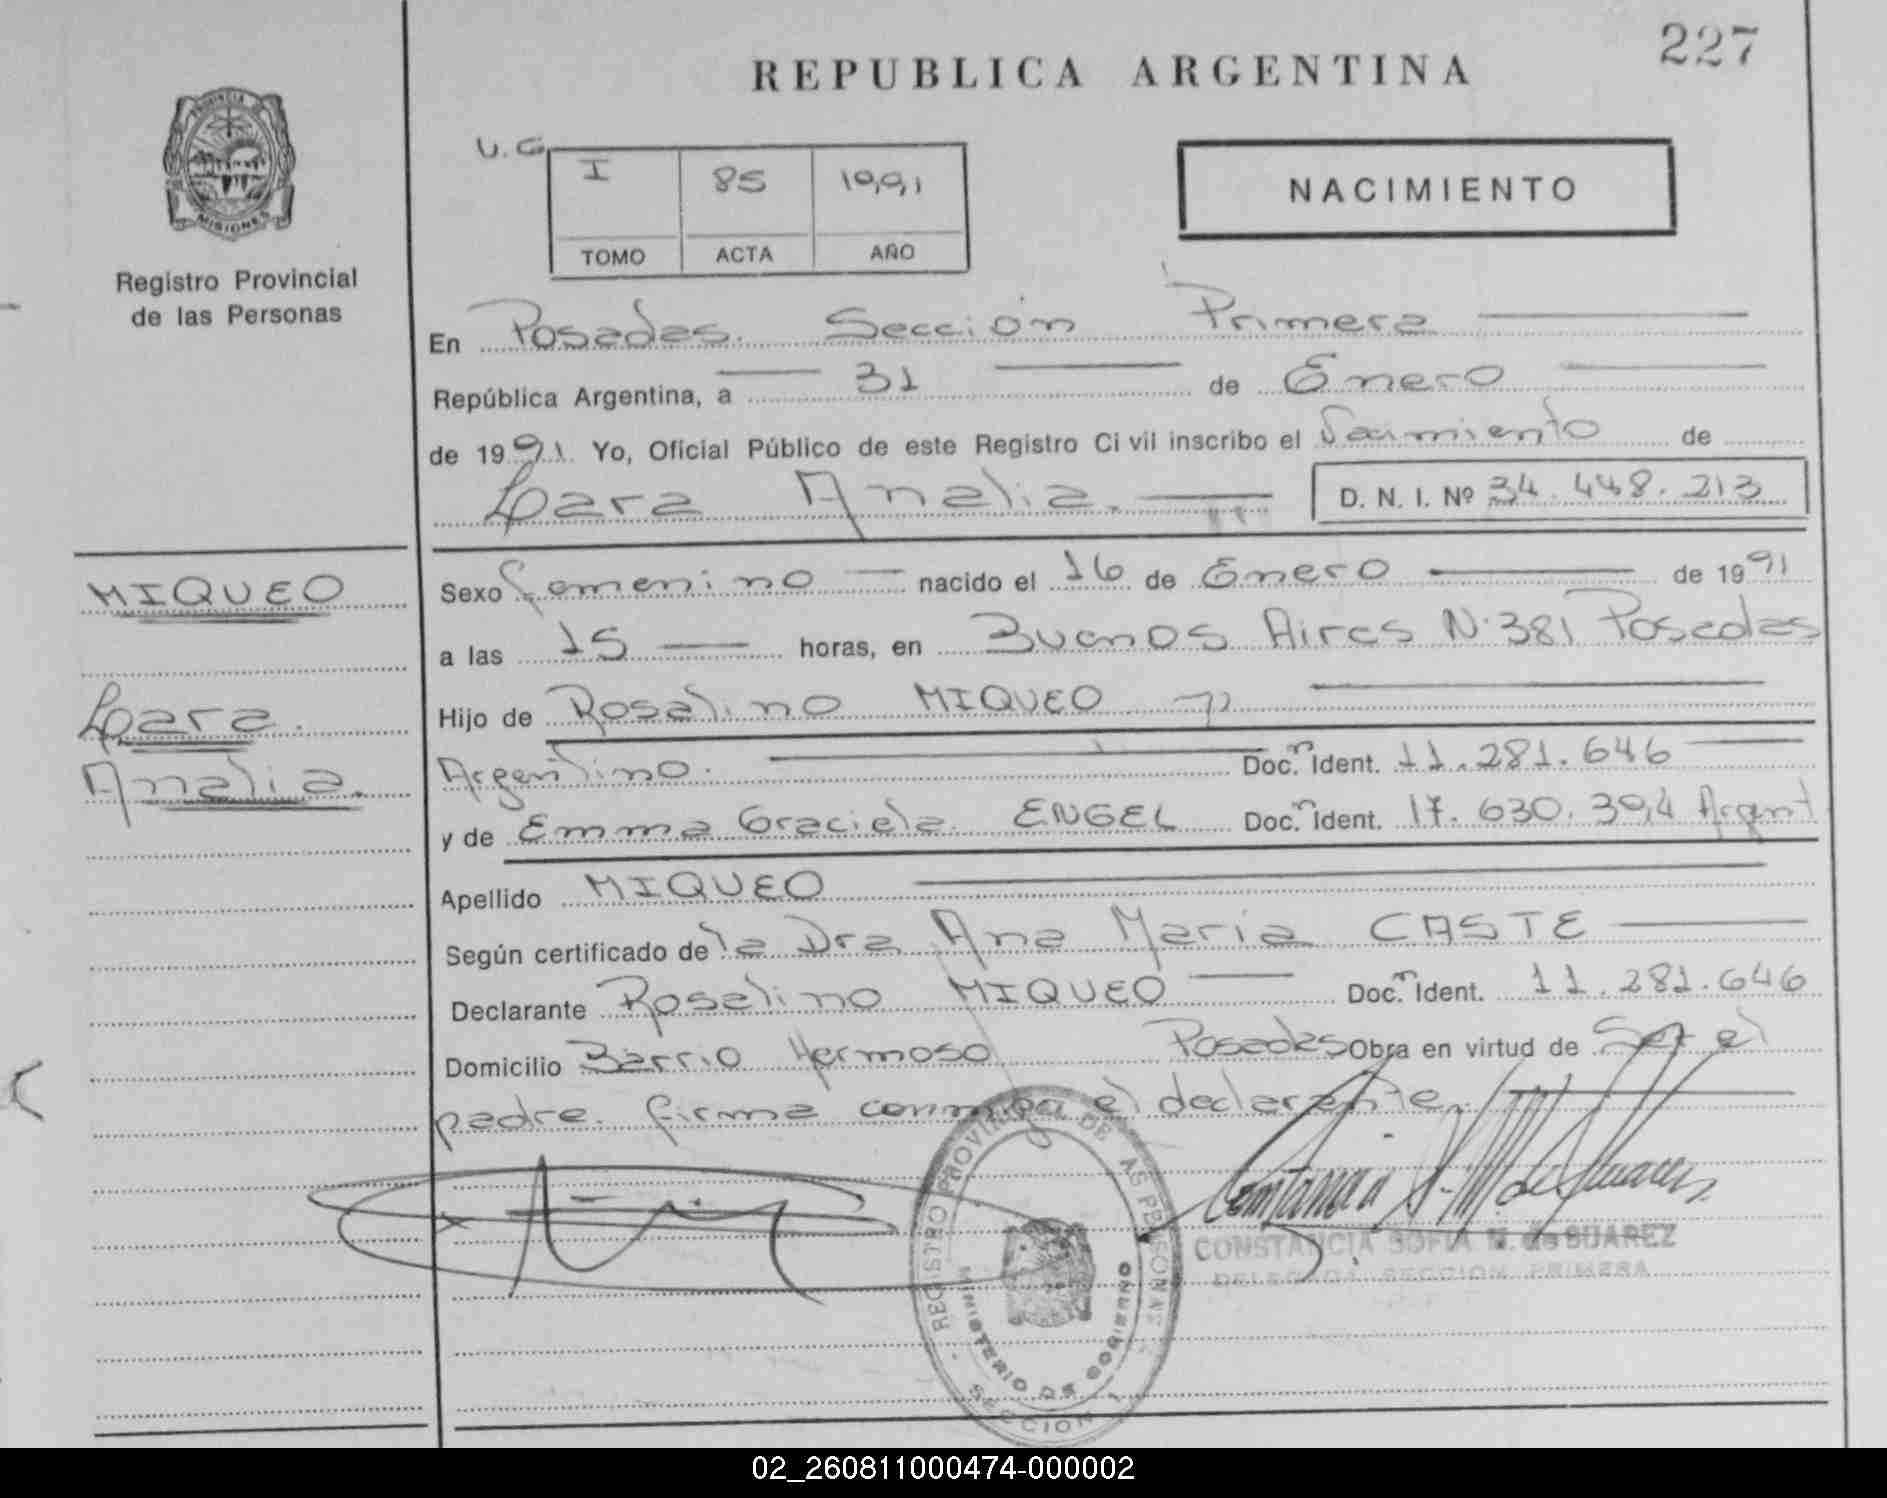 227
REPUBLICA ARGENTINA
PROVINCIA DE
MISIONES
Registro Provincial
de las Personas
U.G
I 85 1991
TOMO ACTA AÑO
NACIMIENTO
En Posadas. Sección Primera
República Argentina, a 31 de Enero
de 1991 Yo, Oficial Público de este Registro Civil inscribo el Nacimiento de
Lara Analia.
D. N. I. Nº 34.448.213
MIQUEO
Lara
Analia.
Sexo femenino nacido el 16 de Enero de 1991
a las 15 horas, en Buenos Aires N·381 Posadas
Hijo de Rosalino MIQUEO
Argentino. Doc. Ident. 11.281.646
y de Emma Graciela ENGEL Doc. Ident. 17.630.394 Argent
Apellido MIQUEO
Según certificado de la Dra Ana Maria CASTE
Declarante Rosalino MIQUEO Doc. Ident. 11.281.646
Domicilio Barrio Hermoso Posadas Obra en virtud de Ser el
padre. firma conmigo el declarante.
REGISTRO PROVINCIAL DE LAS PERSONAS
MINISTERIO DE GOBIERNO
SECCION 1
CONSTANCIA SOFIA M. de SUAREZ
DELEGADA SECCION PRIMERA
02_260811000474-000002